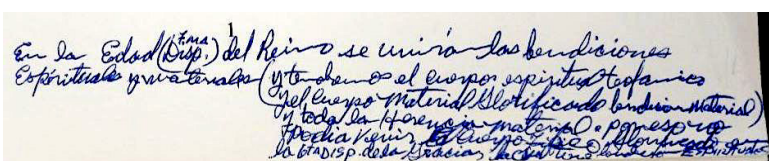 1
En la Edad (Disp. 7ma) del Reino se unirán las bendiciones
Espirituales y materiales (y tendremos el cuerpo espiritual teofanico
y el cuerpo material Glorificado bendicion material)
y toda la Herencia material. por eso no
podia venir el cuerpo Glorificado
la 6ta DISP. de la Gracia